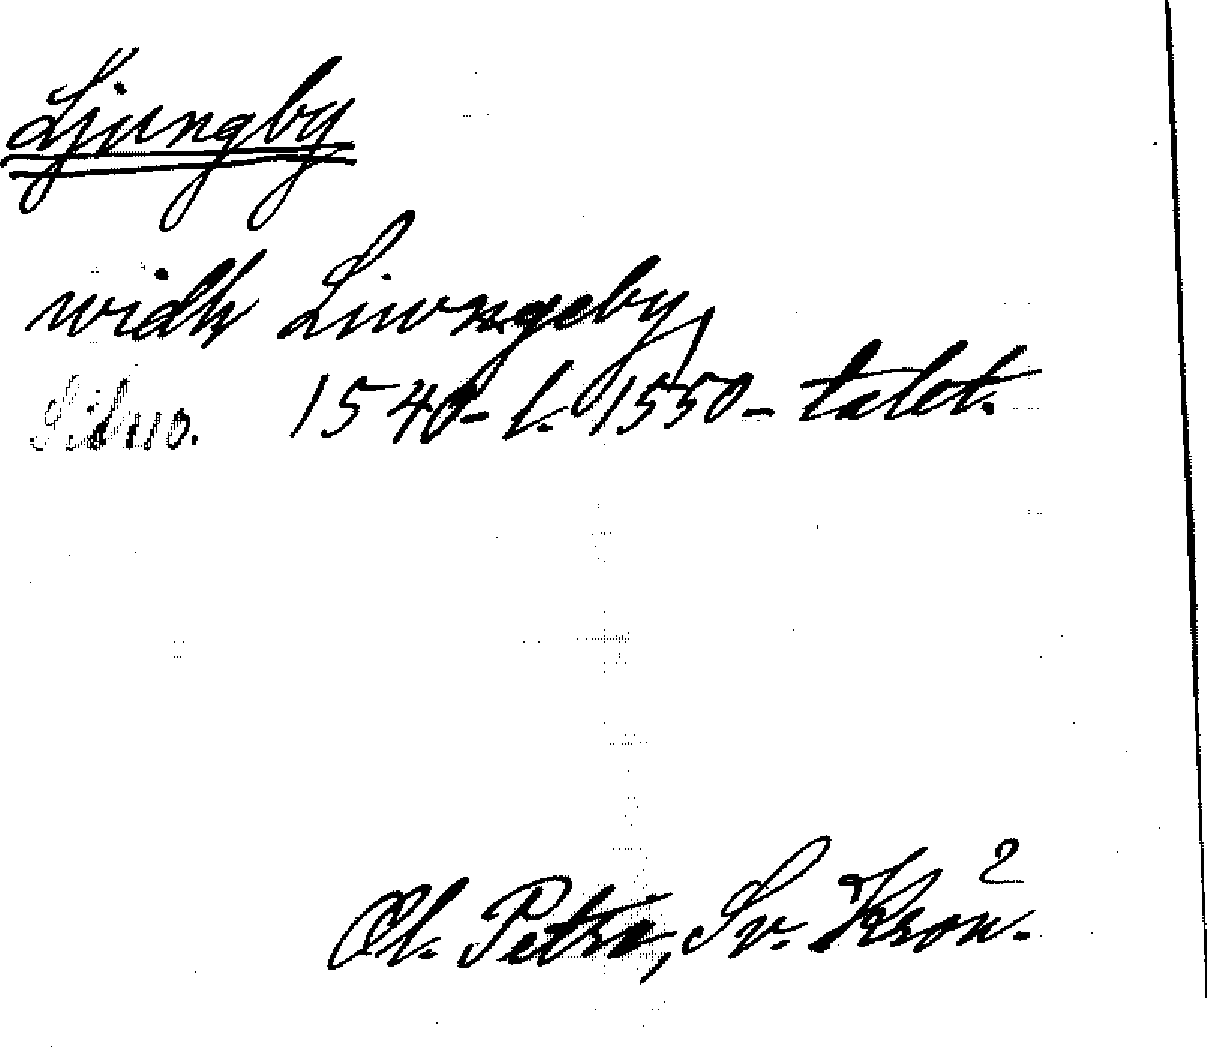 Ljungby
widh Liwngeby
1540- l. 1550-talet.
Ol. Petri, Sv. Krön. 2